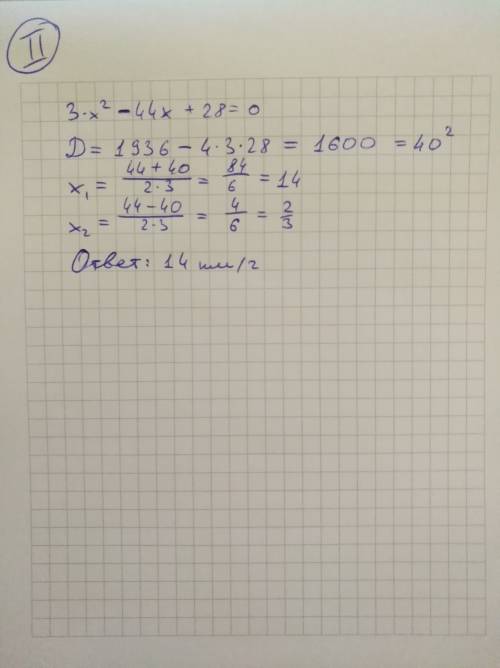 II
3·x² − 44x + 28 = 0
D = 1936 − 4·3·28 = 1600 = 40²
x₁ = (44 + 40)/(2·3) = 84/6 = 14
x₂ = (44 − 40)/(2·3) = 4/6 = 2/3
Ответ: 14 км/ч